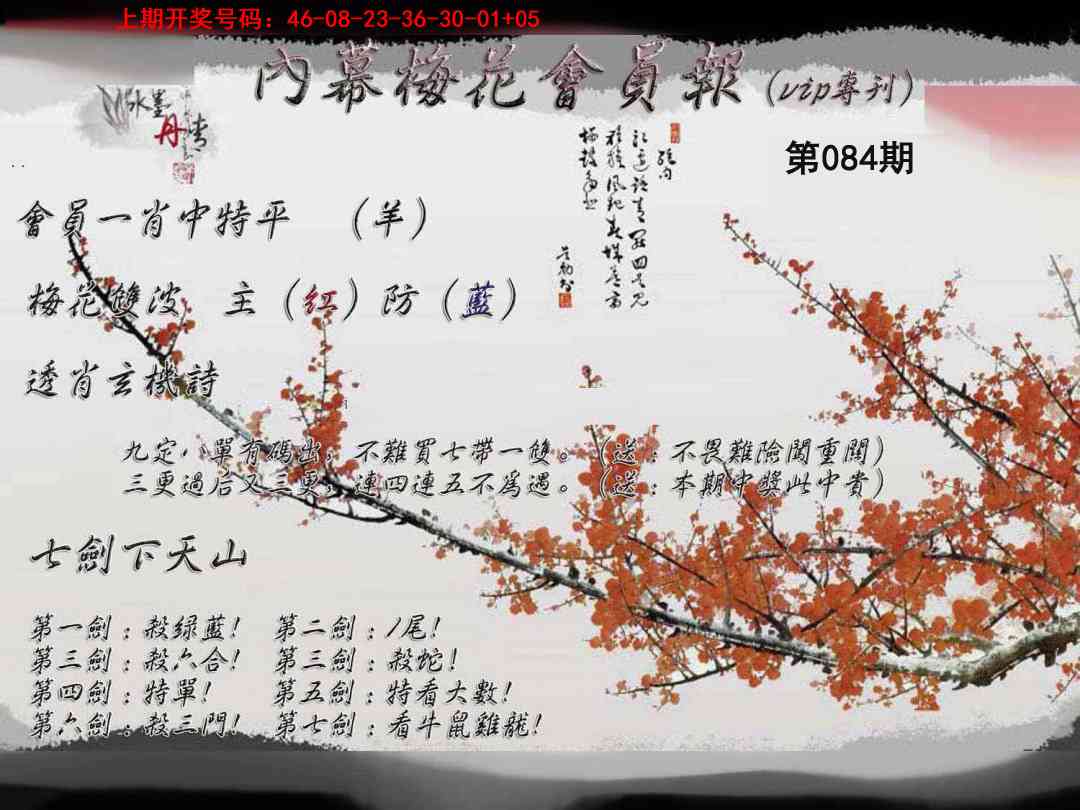 上期开奖号码：46-08-23-36-30-01+05
內幕梅花會員報（vip專刊）
水墨
丹青
第084期
會員一肖中特平 （羊）
梅花雙波 主（紅）防（藍）
透肖玄機詩
九定，單有碼出，不難買七帶一雙。（送：不畏難險闖重關）
三更過后又三更，連四連五不爲過。（送：本期中獎此中貴）
七劍下天山
第一劍：殺绿藍！ 第二劍：1尾！
第三劍：殺六合！ 第三劍：殺蛇！
第四劍：特單！ 第五劍：特看大數！
第六劍：殺三門！ 第七劍：看牛鼠雞龍！